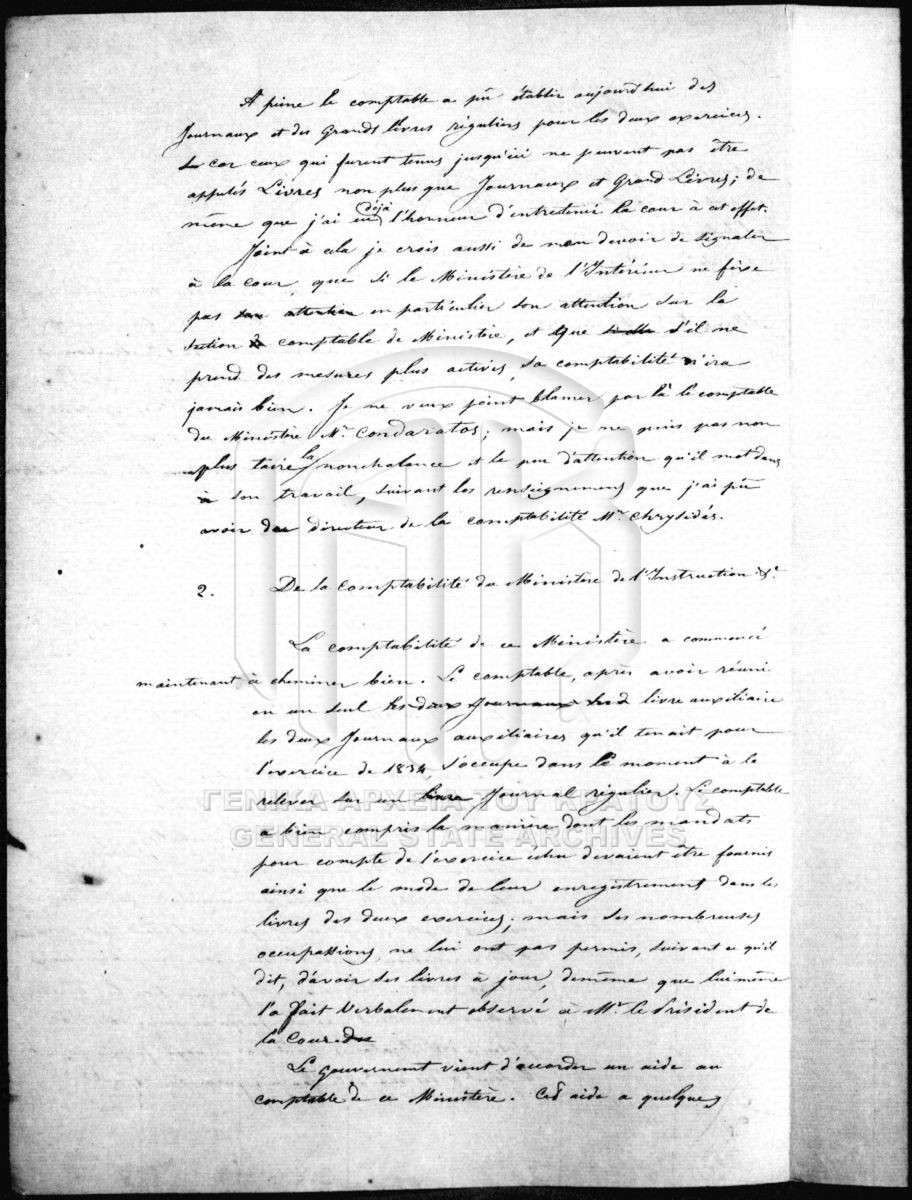 A peine le comptable a pû établir aujourd'hui des
Journaux et des Grands livres réguliers pour les deux exercices.
car ceux qui furent tenus jusqu'ici ne peuvent pas être
appelés Livres non plus que Journaux et Grand Livres; de
même que j'ai eu déjà l'honneur d'entretenir la cour à cet effet.
Joint à cela je crois aussi de mon devoir de signaler
à la cour, que si le Ministère de l'Intérieur ne fixe
pas son attention en particulier son attention sur la
section comptable de Ministère, et que s'il ne
prend des mesures plus actives, sa comptabilité n'ira
jamais bien. Je ne veux point blamer par là le comptable
du Ministère Mr. Condaratos; mais je ne puis pas non
plus taire la nonchalance et le peu d'attention qu'il met dans
à son travail, suivant les renseignemens que j'ai pû
avoir du directeur de la comptabilité Mr. Chrysidés.
2. De la Comptabilité du Ministère de l'Instruction &a
La comptabilité de ce Ministère a commencé
maintenant à cheminer bien. Le comptable, après avoir réuni
en un seul les deux Journaux livre auxiliaire
les deux Journaux auxiliaires qu'il tenait pour
l'exercice de 1834, s'occupe dans le moment à le
relever sur un livre Journal régulier. Le comptable
a bien compris la manière dont les mandats
pour compte de l'exercice devaient être fournis
ainsi que le mode de leur enregistrement dans les
livres des deux exercices; mais ses nombreuses
occupassions, ne lui ont pas permis, suivant ce qu'il
dit, d'avoir ses livres à jour, demême que lui même
l'a fait verbalement observé à Mr. le Président de
la Cour
Le gouvernement vient d'accorder un aide au
comptable de ce Ministère. Cet aide a quelques
ΓΕΝΙΚΑ ΑΡΧΕΙΑ ΤΟΥ ΚΡΑΤΟΥΣ
GENERAL STATE ARCHIVES